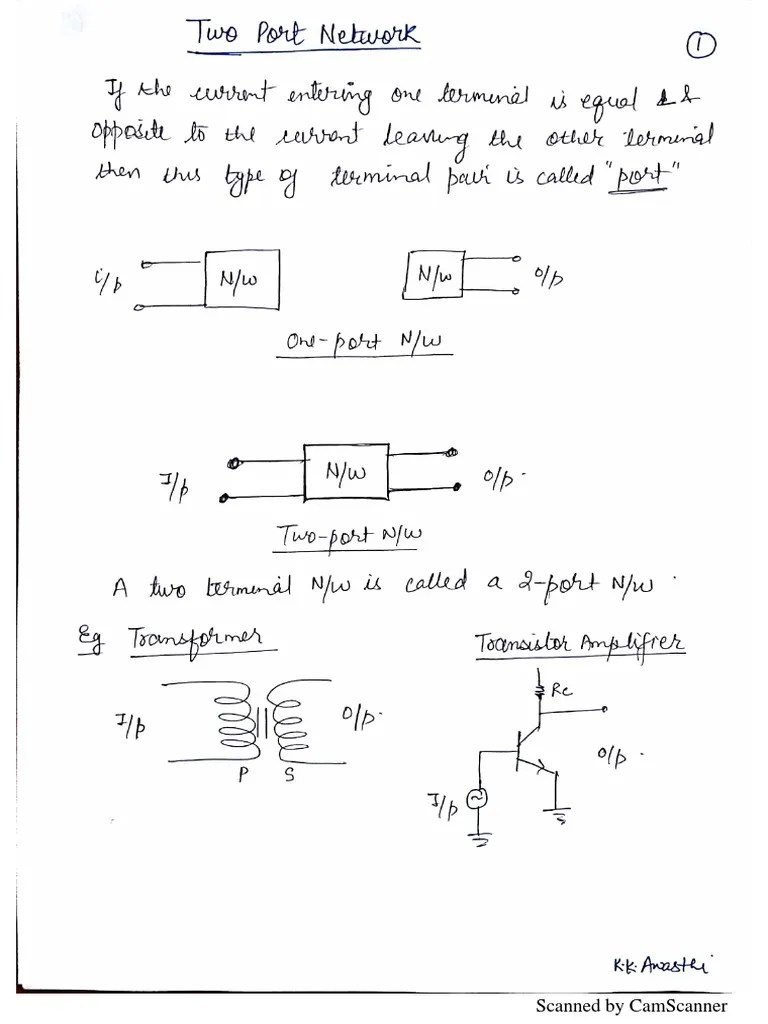 Two Port Network
1
If the current entering one terminal is equal &
opposite to the current leaving the other terminal
then this type of terminal pair is called "port"
i/p
N/W
N/W
O/p
One-port N/W
I/p
N/W
O/p.
Two-port N/W
A two terminal N/W is called a 2-port N/W.
Eg Transformer
Transistor Amplifier
I/p
O/p.
P S
Rc
O/p.
I/p
K.K. Awasthi
Scanned by CamScanner